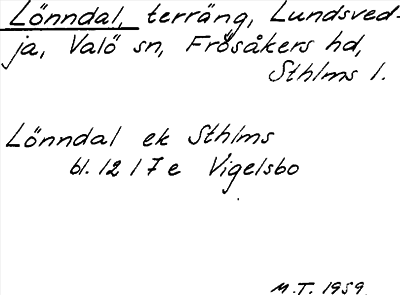 Lönndal, terräng, Lundsved-
ja, Valö sn, Frösåkers hd,
Sthlms l.
Lönndal ek Sthlms
bl. 12 I 7 e Vigelsbo
M.T. 1959.